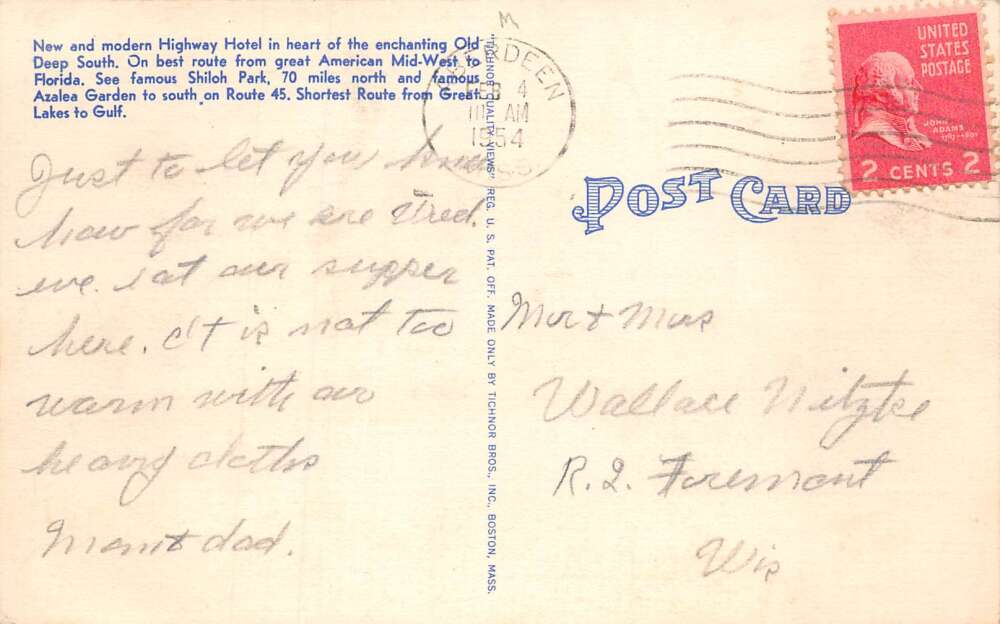 New and modern Highway Hotel in heart of the enchanting Old
Deep South. On best route from great American Mid-West to
Florida. See famous Shiloh Park, 70 miles north and famous
Azalea Garden to south on Route 45. Shortest Route from Great
Lakes to Gulf.
Just to let you know
how far we are Wed.
eve. eat our supper
here. It is not too
warm with our
heavy cloths
Mom & dad.
"TICHNOR QUALITY VIEWS" REG. U. S. PAT. OFF. MADE ONLY BY TICHNOR BROS., INC., BOSTON, MASS.
ABERDEEN
FEB 4
AM
1954
UNITED
STATES
POSTAGE
JOHN
ADAMS
1797-1801
2 CENTS 2
POST CARD
Mr & Mrs
Wallace Nitzke
R.2. Foremont
Wis